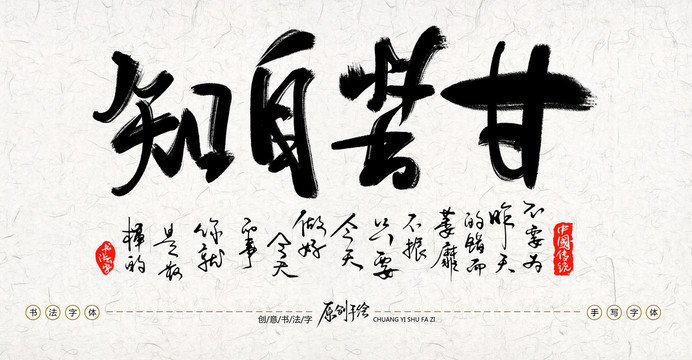 甘苦自知
中國传统
不要为
昨天
的错而
萎靡
不振
只要
今天
做好
今天
的事
你就
是最
棒的
书法字
书法字体
创/意/书/法/字
原创手绘
CHUANG YI SHU FA ZI
手写字体